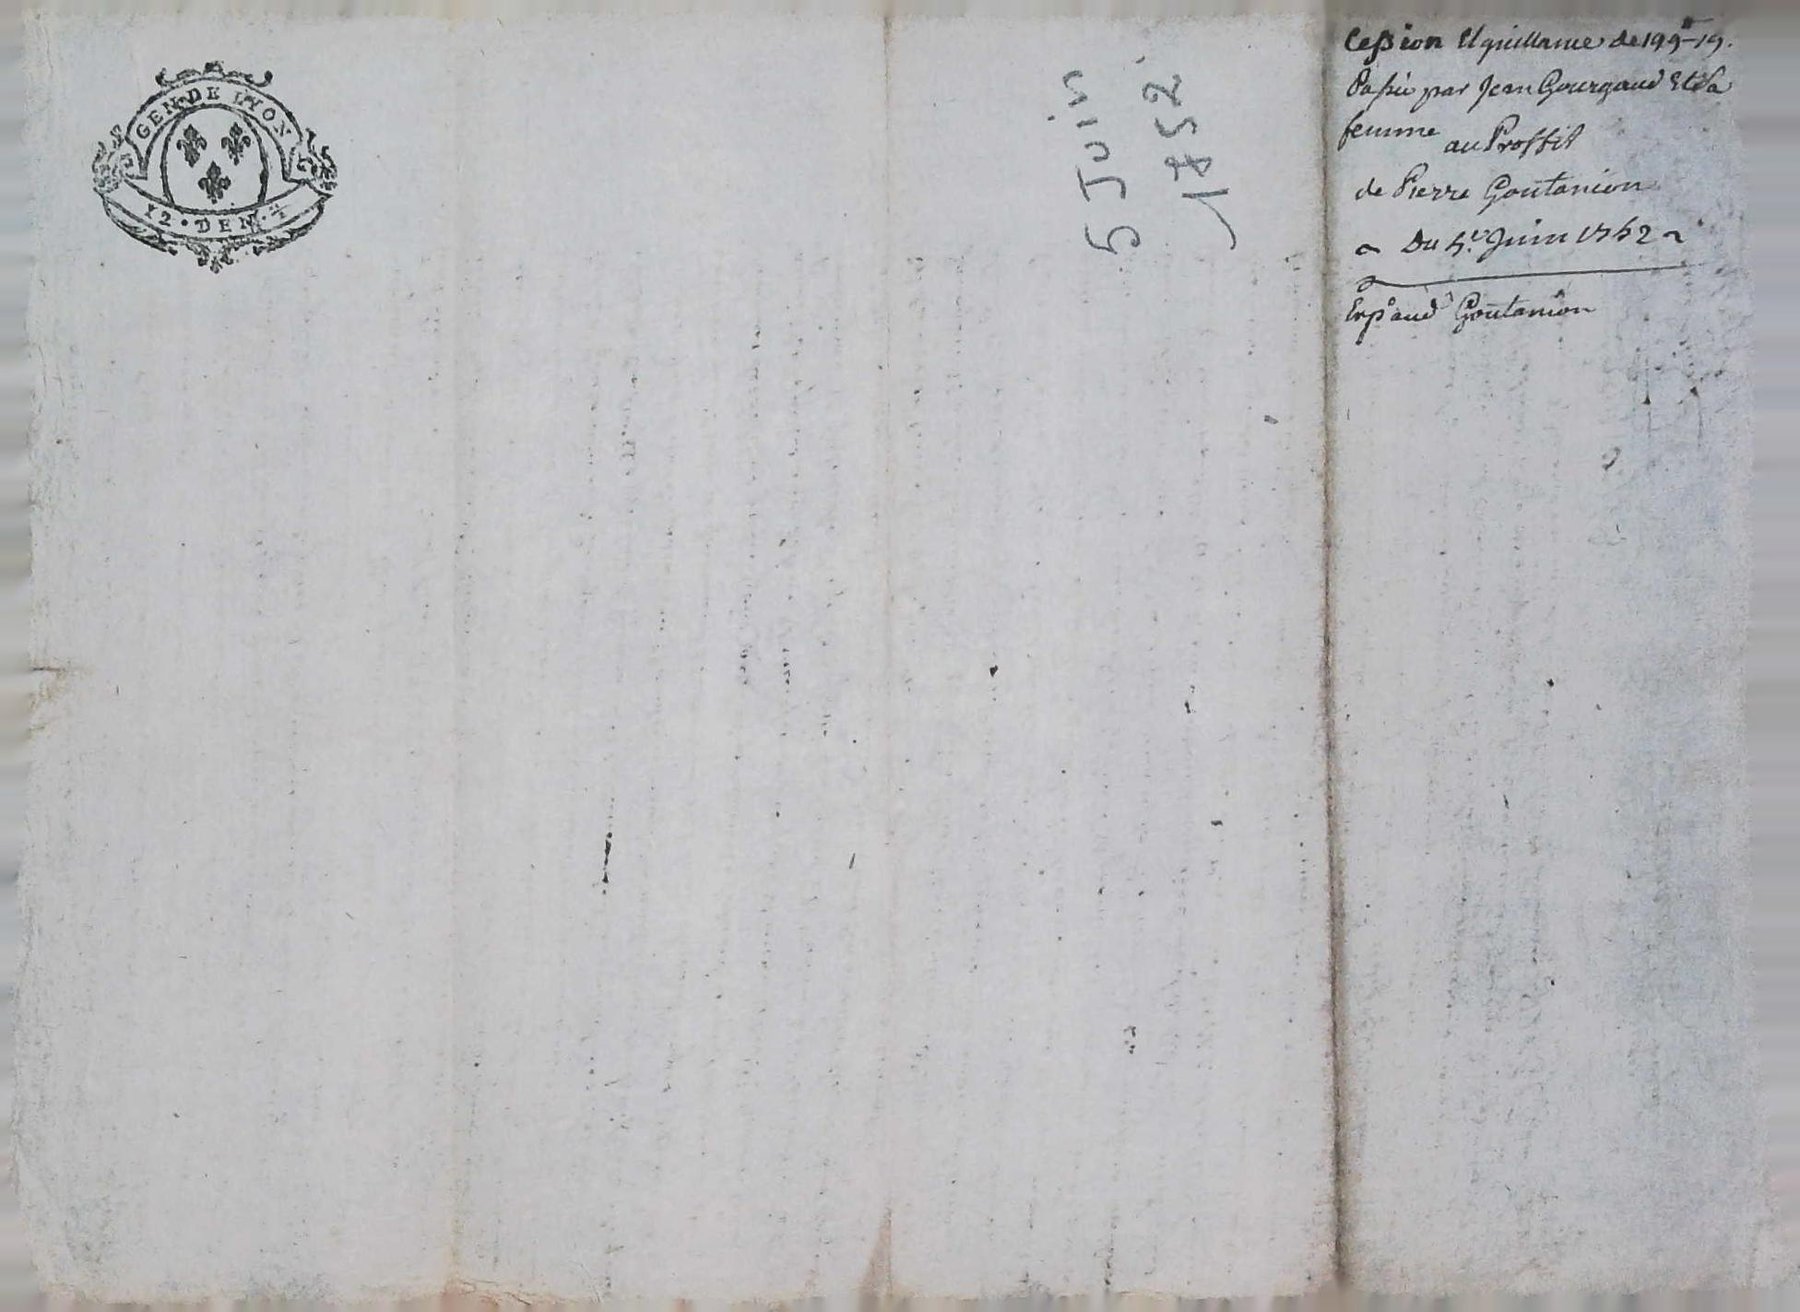 GEN·DE LYON
12·DEN·4
5 Juin
1752
Cession Et quittance de 199# 19.
Passée par Jean Gourgaud Et Sa
femme
au Proffit
de Pierre Goutanion
Du 5e Juin 1752
Exp aud Goutanion